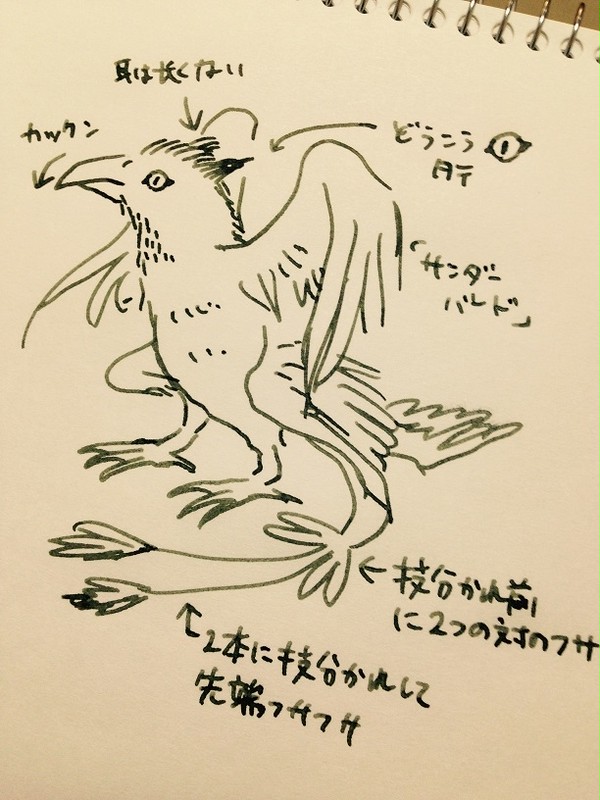 耳は長くない
カックン
どうこう
タテ
「サンダー
バード」
←枝分かれ前
に2つの対のフサ
2本に枝分かれして
先端フサフサ